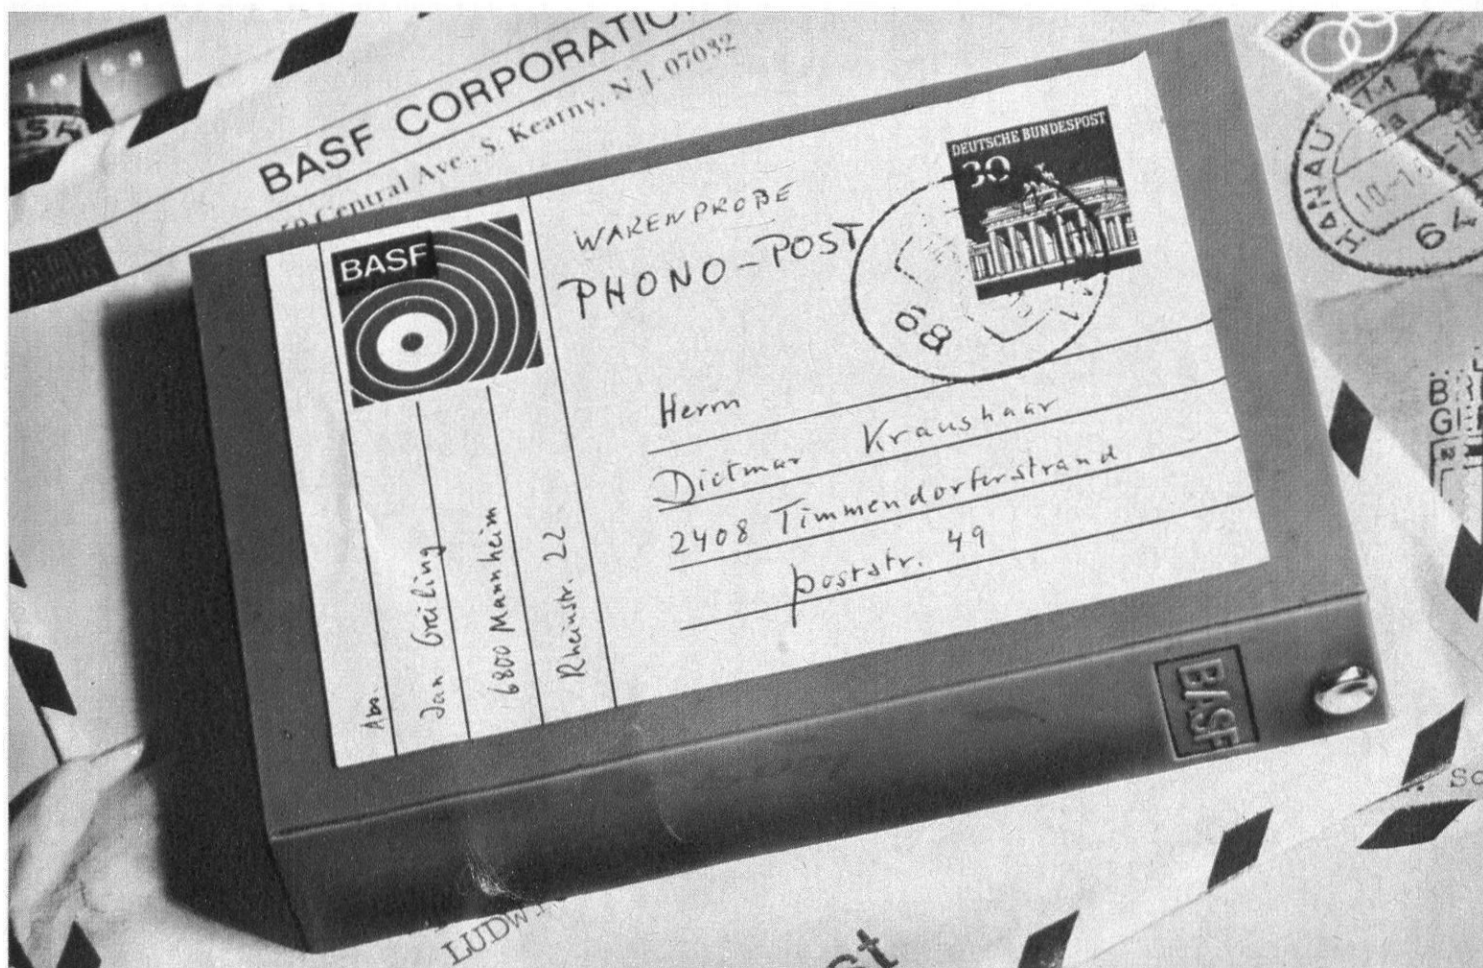 BASF CORPORATIO
Central Ave., S. Kearny, N.J. 07032
BASF
WARENPROBE
PHONO-POST
DEUTSCHE BUNDESPOST
30
68
Herrn
Dietmar Kraushaar
2408 Timmendorferstrand
Poststr. 49
Abs.
Jan Greiling
6800 Mannheim
Rheinstr. 22
BASF
HANAU
64
LUDW
st